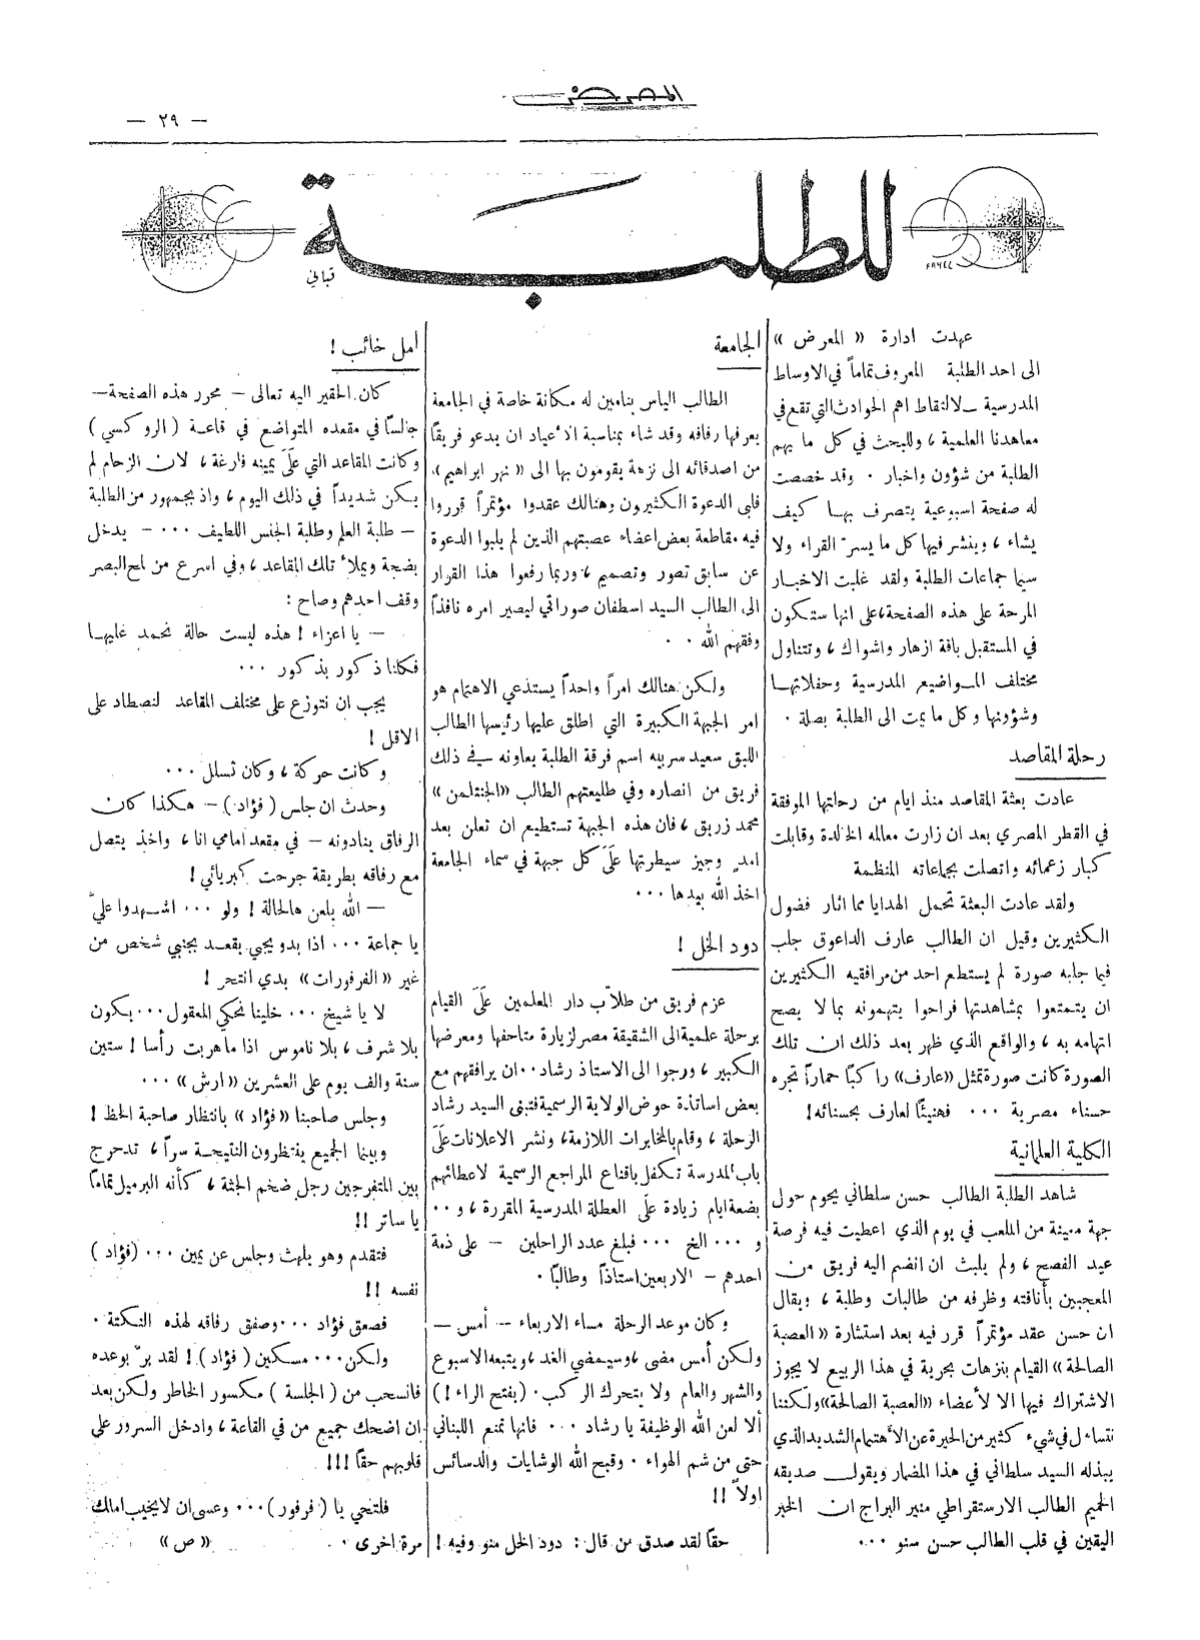 المعرض
— ٢٩ —
للطلبة
قباني
عهدت ادارة « المعرض »
الى احد الطلبة المعروف تماماً في الاوساط
المدرسية – لالتقاط اهم الحوادث التي تقع في
معاهدنا العلمية ، وللبحث في كل ما يهم
الطلبة من شؤون واخبار . وقد خصصت
له صفحة اسبوعية يتصرف بها كيف
يشاء ، وينشر فيها كل ما يسرّ القراء ولا
سيما جماعات الطلبة ولقد غلبت الاخبار
المرحة على هذه الصفحة ، على انها ستكون
في المستقبل باقة ازهار واشواك ، وتتناول
مختلف المواضيع المدرسية وحفلاتها
وشؤونها وكل ما يمت الى الطلبة بصلة .
رحلة المقاصد
عادت بعثة المقاصد منذ ايام من رحلتها الموفقة
في القطر المصري بعد ان زارت معالمه الخالدة وقابلت
كبار زعمائه واتصلت بجماعاته المنظمة
ولقد عادت البعثة تحمل الهدايا مما اثار فضول
الكثيرين وقيل ان الطالب عارف الداعوق جلب
فيما جلبه صورة لم يستطع احد من مرافقيه الكثيرين
ان يتمتعوا بمشاهدتها فراحوا يتهمونه بما لا يصح
اتهامه به ، والواقع الذي ظهر بعد ذلك ان تلك
الصورة كانت صورة تمثل «عارف» راكباً حماراً تجره
حسناء مصرية ... فهنيئاً لعارف بحسنائه !
الكلية العلمانية
شاهد الطلبة الطالب حسن سلطاني يحوم حول
جهة معينة من الملعب في يوم الذي اعطيت فيه فرصة
عيد الفصح ، ولم يلبث ان انضم اليه فريق من
المعجبين بأناقته وظرفه من طالبات وطلبة ، ويقال
ان حسن عقد مؤتمراً قرر فيه بعد استشارة « العصبة
الصالحة » القيام بنزهات بحرية في هذا الربيع لا يجوز
الاشتراك فيها الا لأعضاء «العصبة الصالحة» ولكننا
نتساءل في شيء كثير من الحيرة عن الأهتمام الشديد الذي
يبذله السيد سلطاني في هذا المضمار ويقول صديقه
الحميم الطالب الارستقراطي منير البراج ان الخبر
اليقين في قلب الطالب حسن سنو ...
الجامعة
الطالب الياس بنامين له مكانة خاصة في الجامعة
يعرفها رفاقه وقد شاء بمناسبة الأعياد ان يدعو فريقاً
من اصدقائه الى نزهة يقومون بها الى « نهر ابراهيم »،
فلبى الدعوة الكثيرون وهنالك عقدوا مؤتمراً قرروا
فيه مقاطعة بعض اعضاء عصبتهم الذين لم يلبوا الدعوة
عن سابق تصور وتصميم ، وربما رفعوا هذا القرار
الى الطالب السيد اسطفان صوراتي ليصير امره نافذاً
وفقهم الله . .
ولكن هنالك امراً واحداً يستدعي الاهتمام هو
امر الجبهة الكبيرة التي اطلق عليها رئيسها الطالب
اللبق سعيد سربيه اسم فرقة الطلبة يعاونه في ذلك
فريق من انصاره وفي طليعتهم الطالب «الجنتلمن »
محمد زريق ، فان هذه الجبهة تستطيع ان تعلن بعد
امدٍ وجيز سيطرتها علَى كل جبهة في سماء الجامعة
اخذ الله بيدها ...
دود الخل !
عزم فريق من طلاّب دار المعلمين علَى القيام
برحلة علمية الى الشقيقة مصر لزيارة متاحفها ومعرضها
الكبير ، ورجوا الى الاستاذ رشاد .. ان يرافقهم مع
بعض اساتذة حوض الولاية الرسمية فتبنى السيد رشاد
الرحلة ، وقام بالمخابرات اللازمة، ونشر الاعلانات علَى
باب المدرسة تكفل باقناع المراجع الرسمية لاعطائهم
بضعة ايام زيادة علَى العطلة المدرسية المقررة ، و ..
و ... الخ ... فبلغ عدد الراحلين – على ذمة
احدهم – الاربعين استاذاً وطالباً .
وكان موعد الرحلة مساء الاربعاء – أمس –
ولكن أمس مضى ، وسيمضي الغد ، ويتبعه الاسبوع
والشهر والعام ولا يتحرك الركب . (بفتح الراء !)
ألا لعن الله الوظيفة يا رشاد ... فانها تمنع اللبناني
حتى من شم الهواء . وقبح الله الوشايات والدسائس
اولاً !!
حقاً لقد صدق من قال : دود الخل منو وفيه !
أمل خائب !
كان الحقير اليه تعالى – محرر هذه الصفحة –
جالساً في مقعده المتواضع في قاعة ( الروكسي )
وكانت المقاعد التي علَى يمينه فارغة ، لان الزحام لم
يكن شديداً في ذلك اليوم ، واذ بجمهور من الطلبة
– طلبة العلم وطلبة الجنس اللطيف ... – يدخل
بضجة ويملأ تلك المقاعد ، وفي اسرع من لمح البصر
وقف احدهم وصاح :
– يا اعزاء ! هذه ليست حالة نحمد عليها
فكلنا ذكور بذكور ...
يجب ان نتوزع على مختلف المقاعد لنصطاد على
الاقل !
وكانت حركة ، وكان تسلل ...
وحدث ان جلس ( فؤاد ) – هكذا كان
الرفاق ينادونه – في مقعد امامي انا ، واخذ يتصل
مع رفاقه بطريقة جرحت كبريائي !
– الله يلعن هالحالة ! ولو ... اشهدوا عليّ
يا جماعة ... اذا بدو يجي يقعد بجنبي شخص من
غير «الفرفورات» بدي انتحر !
لا يا شيخ ... خلينا نحكي المعقول ... بكون
بلا شرف ، بلا ناموس اذا ما هربت رأسا ! ستين
سنة والف يوم على العشرين « ارش » ...
وجلس صاحبنا « فؤاد » بانتظار صاحبة الحظ !
وبينما الجميع ينتظرون النتيجة سراً ، تدحرج
بين المتفرجين رجل ضخم الجثة ، كأنه البرميل تماماً
يا ساتر !!
فتقدم وهو يلهث وجلس عن يمين ... ( فؤاد )
نفسه !!
فصعق فؤاد ... وصفق رفاقه لهذه النكتة .
ولكن ... مسكين ( فؤاد ) ! لقد برّ بوعده
فانسحب من ( الجلسة ) مكسور الخاطر ولكن بعد
ان اضحك جميع من في القاعة ، وادخل السرور على
قلوبهم حقاً !!!
فلتحي يا ( فرفور ) ... وعسى ان لا يخيب امالك
مرة اخرى . . « ص »